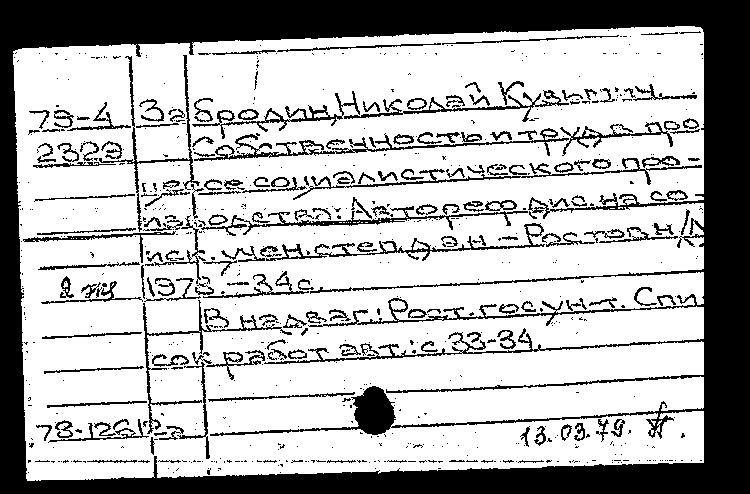 79-4 Забродин, Николай Кузьмич.
2329 Собственность и труд в про-
цессе социалистического про-
изводства: Автореф. дис. на со-
иск. учен. степ. д.э.н. - Ростов н/Д
2 экз 1978. - 34 с.
В надзаг.: Рост. гос. ун-т. Спи-
сок работ авт.: с. 33-34.
78-12612а
13.03.79.